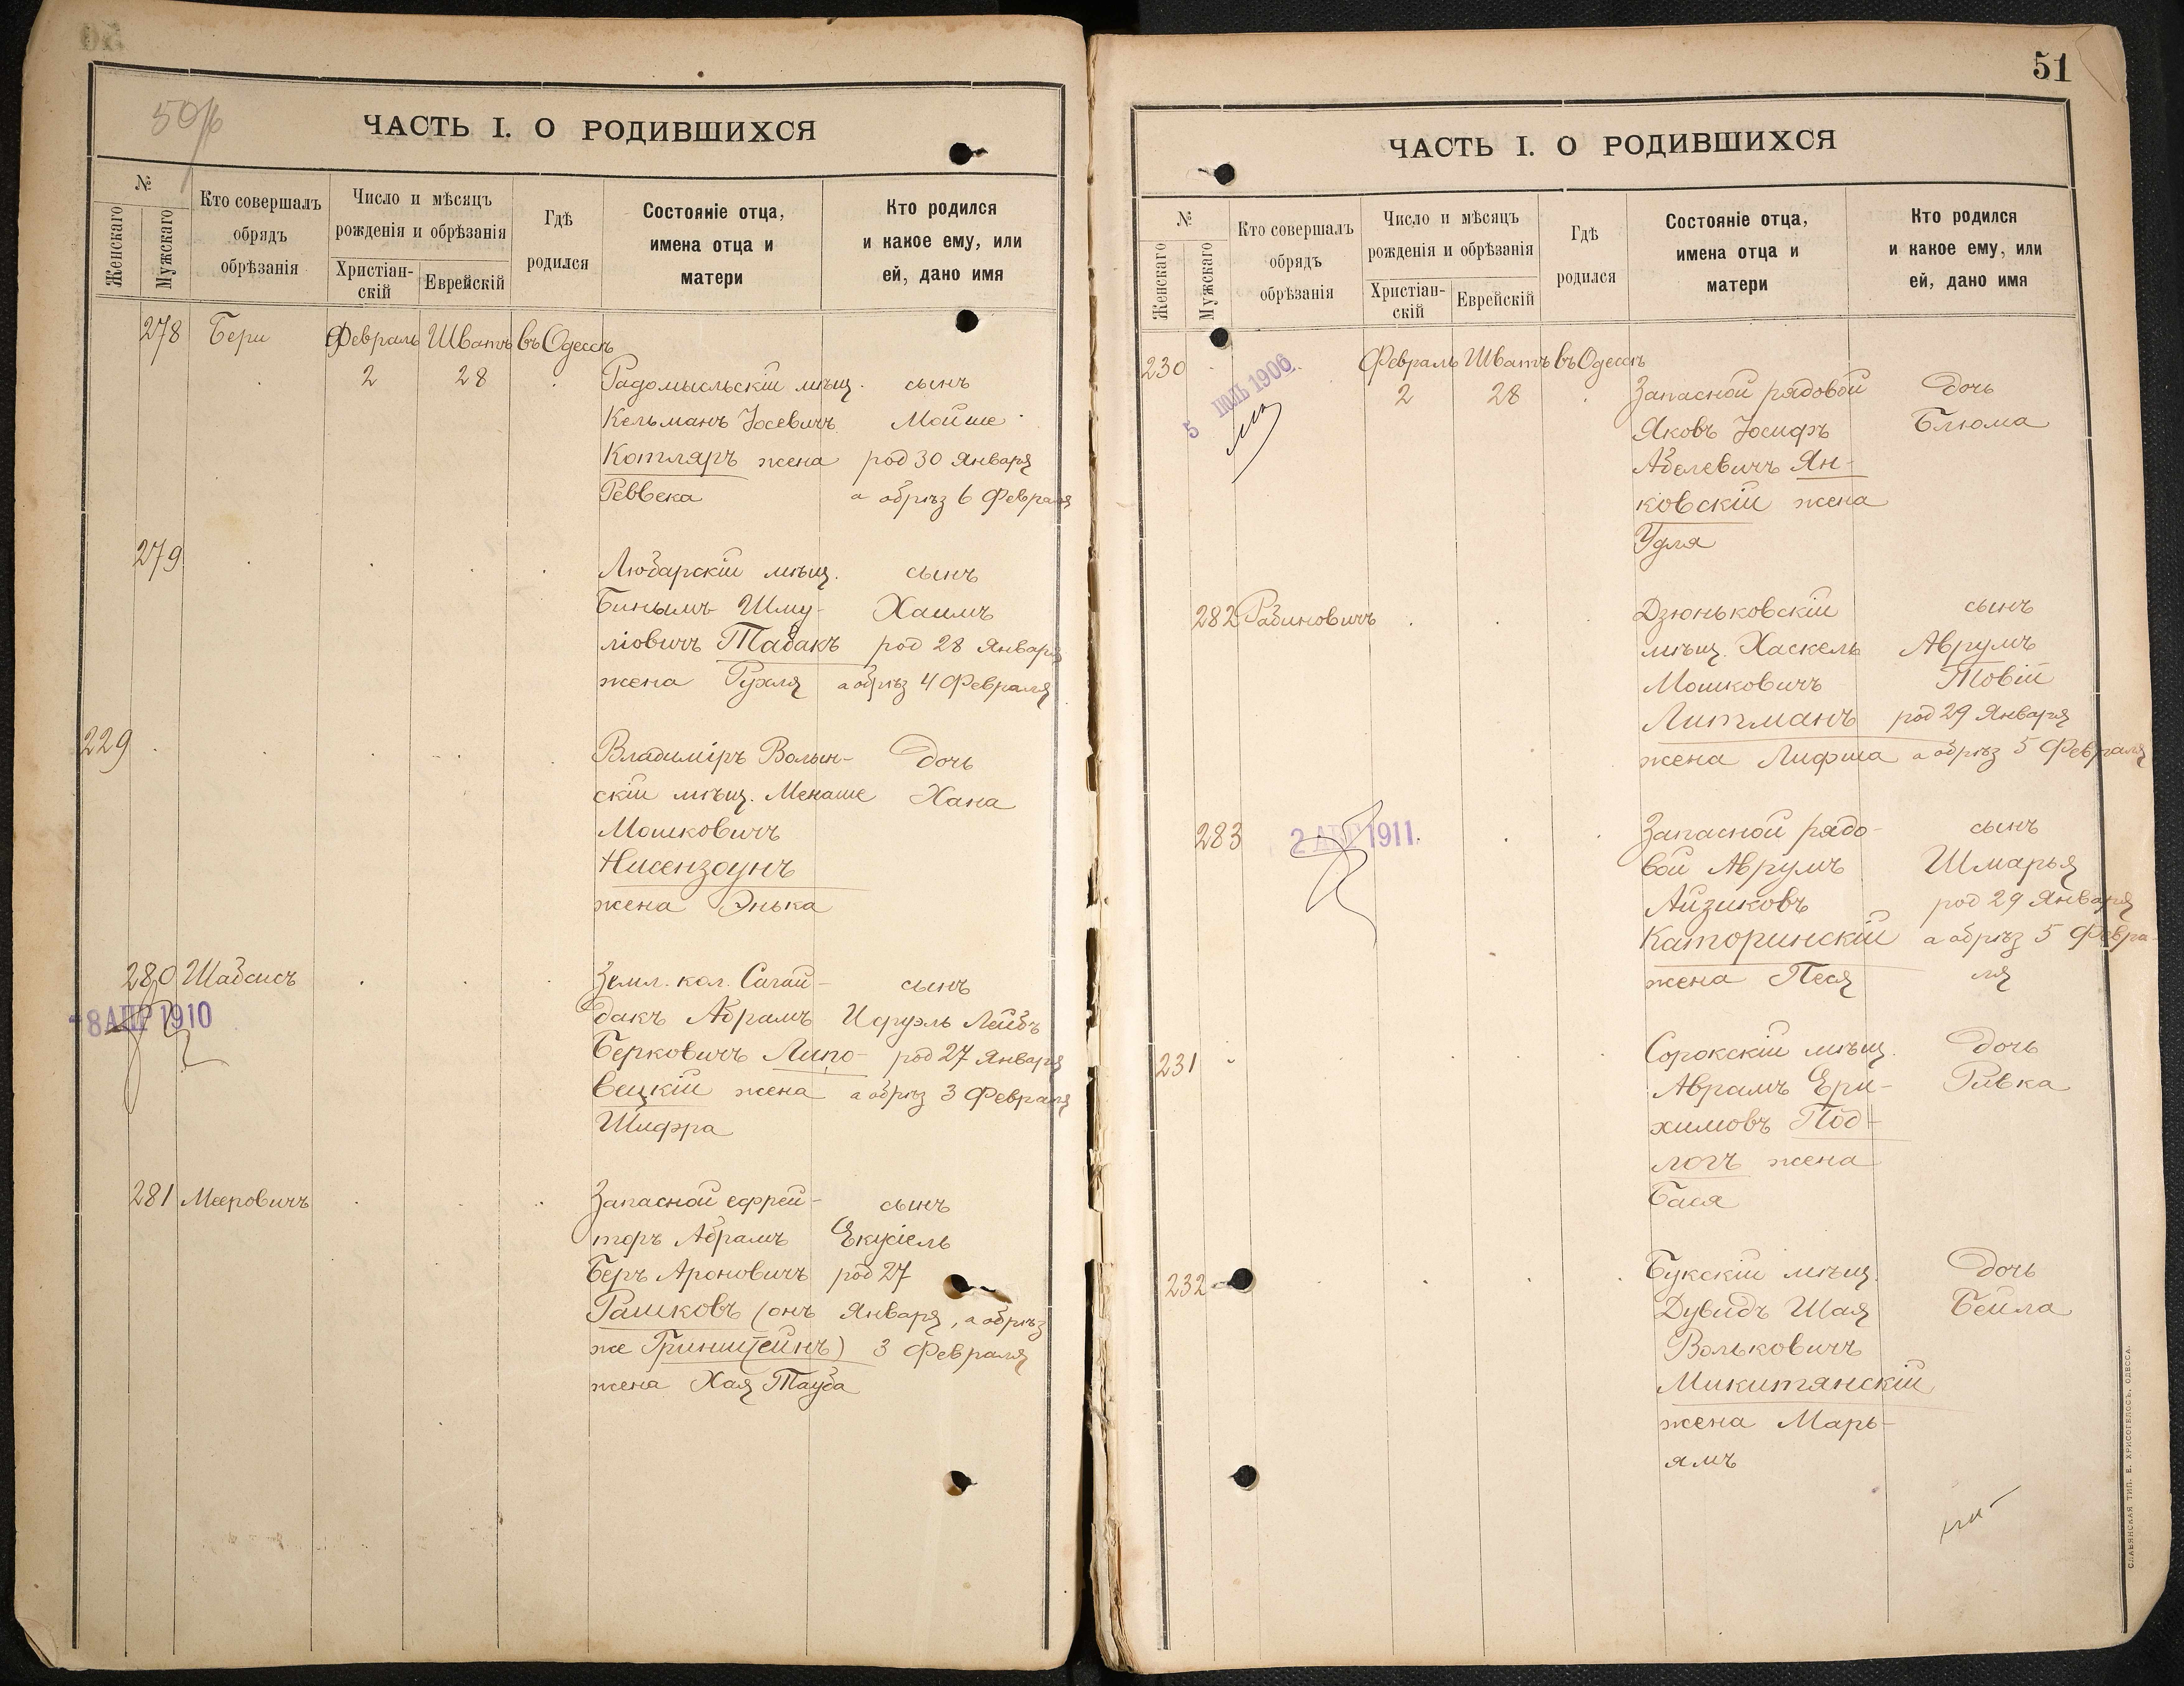 50/б
ЧАСТЬ I. О РОДИВШИХСЯ
№
Женскаго
Мужскаго
Кто совершалъ
обрядъ
обрѣзанія
Число и мѣсяцъ
рожденія и обрѣзанія
Христіан-
скій
Еврейскій
Гдѣ
родился
Состояніе отца,
имена отца и
матери
Кто родился
и какое ему, или
ей, дано имя
278 Бери Февраль Шватъ въ Одессѣ
2 28 Радомысльскій мѣщ. сынъ
Кельманъ Іосевичъ Мойше
Котляръ жена род 30 Января
Реввека а обрѣз 6 Февраля
279 Любарскій мѣщ. сынъ
Биньымъ Шму- Хаимъ
ліовичъ Табакъ род 28 Января
жена Рухля а обрѣз 4 Февраля
229 Владиміръ Волын- дочь
скій мѣщ. Менаше Хана
Мошковичъ
Нисензоунъ
жена Энька
280 Шабсисъ Земл. кол. Сагай- сынъ
8 АПР 1910
дакъ Абрамъ Исруэль Лейбъ
Берковичъ Липо- род 27 Января
вецкій жена а обрѣз 3 Февраля
Шифра
281 Мееровичъ Запасной ефрей- сынъ
торъ Абрамъ Екусіель
Беръ Ароновичъ род 27
Рашковъ (онъ Января, а обрѣз
же Гринштейнъ) 3 Февраля
жена Хая Тауба
51
ЧАСТЬ I. О РОДИВШИХСЯ
№
Женскаго
Мужскаго
Кто совершалъ
обрядъ
обрѣзанія
Число и мѣсяцъ
рожденія и обрѣзанія
Христіан-
скій
Еврейскій
Гдѣ
родился
Состояніе отца,
имена отца и
матери
Кто родился
и какое ему, или
ей, дано имя
230 Февраль Шватъ въ Одессѣ
5 ІЮЛЬ 1906
2 28 Запасной рядовой дочь
Яковъ Іосифъ Блюма
Абелевичъ Ян-
ковскій жена
Удля
282 Рабиновичъ Дзюньковскій сынъ
мѣщ. Хаскель Аврумъ
Мошковичъ Товій
Литманъ род 29 Января
жена Лифша а обрѣз 5 Февраля
283 2 АПР 1911. Запасной рядо- сынъ
вой Аврумъ Шмарья
Айзиковъ род 29 Января
Каторинскій а обрѣз 5 Февра-
жена Песя ля
231 Сорокскій мѣщ. дочь
Аврамъ Ери- Ривка
химовъ Под-
логъ жена
Бася
232 Букскій мѣщ. дочь
Дувидъ Шая Бейла
Вольковичъ
Микитянскій
жена Марь-
ямъ
СЛАВЯНСКАЯ ТИП. Е. ХРИСОГЕЛОСЪ, ОДЕССА.